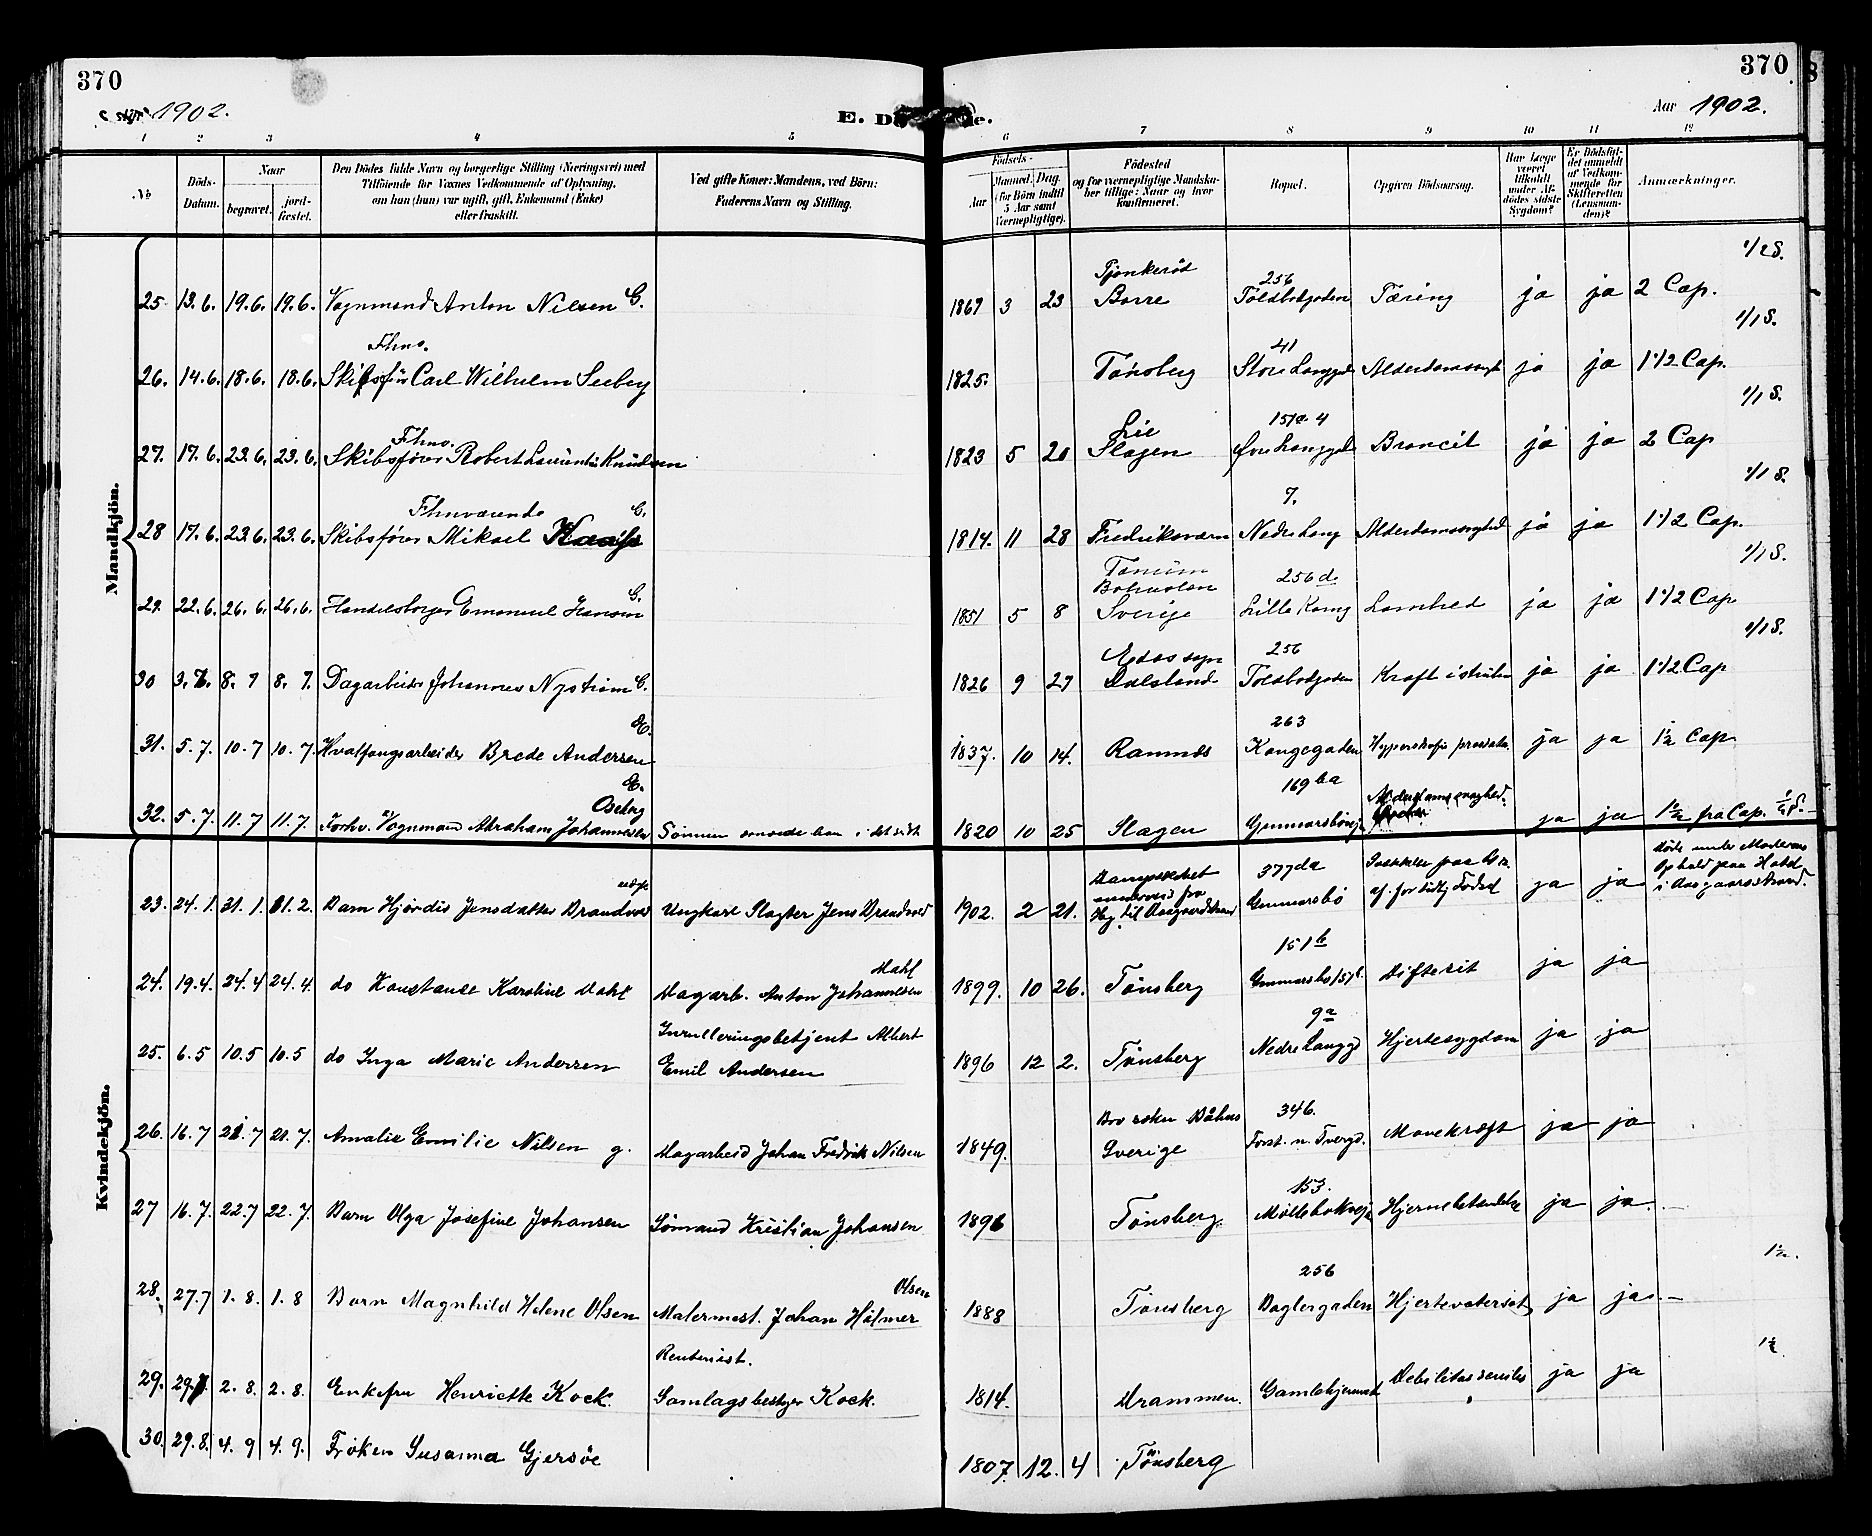 370
370
1902.
Aar 1902.
E. Dø
1 2 3 4 5 6 7 8 9 10 11 12
No
Døds-Datum.
Naar
begravet.
jord-fæstet.
Den Dødes fulde Navn og borgerlige Stilling (Næringsvei) med
Tilføiende for Voxnes Vedkommende af Oplysning,
om hun (han) var ugift, gift, Enkemand (Enke)
eller fraskilt.
Ved gifte Koner: Mandens, ved Børn:
Faderens Navn og Stilling.
Fødsels-
Aar
Maaned. Dag.
(for Børn indtil
5 Aar samt
Værnepligtige).
Fødested
og for værnepligtige Mandska-
ber tillige: Naar og hvor
konfirmeret.
Bopæl.
Opgiven Dødsaarsag.
Har Læge
været
tilkaldt
under Af-
dødes sidste
Sygdom?
Er Dødsfal-
det anmeldt
af Vedkom-
mende for
Skifteretten
(Lensman-
den)?
Anmærkninger.
Mandkjön.
25. 13.6. 19.6. 19.6. Vognmand Anton Nilsen G. 1867 3 23 Borre 256 Toldbodgaden Tæring ja ja 2 Cap. 1/2 S.
26. 14.6. 18.6. 18.6. Fhnv. Skibsfør Carl Wilhelm Seeberg 1825. Tønsberg 41 Store Langgd Alderdomssvagh ja ja 1 1/2 Cap. 1/1 S.
27. 17.6. 23.6. 23.6. Fhnv. Skibsfører Robert Laurentius Knudsen 1823 5 20 Lie Slagen 151a 4 Øvre Langgd Broncit ja ja 2 Cap 1/1 S.
28 17.6. 23.6. 23.6. Fhnværende Skibsfører Mikael G. 1814. 11 28 Fredriksværn 7. Nedre Lang Alderdomssvaghed ja ja 1 1/2 Cap. 1/1 S.
29. 22.6. 26.6. 26.6. Handelsborger Emanuel Hansen G. 1851 5 8 Tanum Bohuslen Sverige 256 d. Lille Kong Lamhed ja ja 1 1/2 Cap 1/1 S.
30 3.7. 8.7 8.7. Dagarbeider Johannes Nystrøm G. 1826 9 27 Dalsland 256 Toldbodgaden Kræft i struben ja ja 1 1/2 Cap 1/1 S.
31. 5.7. 10.7 10.7. Hvalfangsarbeider Brede Andersen E. 1837. 10 14. Ramnæs 263 Kongegaden Hypertrofia prostata ja ja 1 1/2 Cap.
32. 5.7. 11.7 11.7. Forhv. Vognmand Abraham Johannesen Oseberg E. 1820 10 25 Slagen 169 ba Gunnarsbøvej Alderdomssvaghed. ja ja 1 1/2 fra Cap.
Kvindekjön.
23. 24.1. 31.1. 31.2. Barn Hjørdis Jensdatter Brandvold Ungkarl Slagter Jens Brandvold 1902. 2 21. Dampskibet underveis fra Hbg til Aasgaardstrand 377 da Gunnarsbø ja ja Døde under Moderens Ophold paa Hotel i Aasgaardstrand.
24. 19.4. 24.4 24.4. do Konstanse Karoline Dahl Dagarb. Anton Johannesen Dahl 1899. 10 26. Tønsberg 151 b Gunnarsbø Difterit ja ja
25. 6.5 10.5 10.5 do Inga Marie Andersen Inrulleringsbetjent Albert
Emil Andersen 1896 12 2. Tønsberg 9a Nedre Langgd Hjertesygdom ja ja
26. 16.7 21.7 21.7. Amalie Emilie Nilsen g. Dagarbeid Johan Fredrik Nilsen 1849. Bro soken Båhus Sverige 346. Forst. n. Tvergd. Mavekræft ja ja
27 16.7. 22.7 22.7. Barn Olga Josefine Johansen Sømand Kristian Johansen 1896 Tønsberg. 153. Møllebakvej Hjernebetændelse ja ja.
28. 27.7 1.8. 1.8 Barn Magnhild Helene Olsen Malermest. Johan Hilmer Olsen 1888 Tønsberg 256 Baglergaden Hjertevatersot ja ja. 1 1/2.
29. 29.7. 2.8. 2.8. Enkefru Henriette Kock. Rentenist. Samlagsbestyer Kock. 1814. Drammen. Gamlehjemmet Debilitas senilis ja ja 1 1/2
30. 29.8. 4.9 4.9. Frøken Susanna Gjersøe 1807. 12. 4 Tønsberg